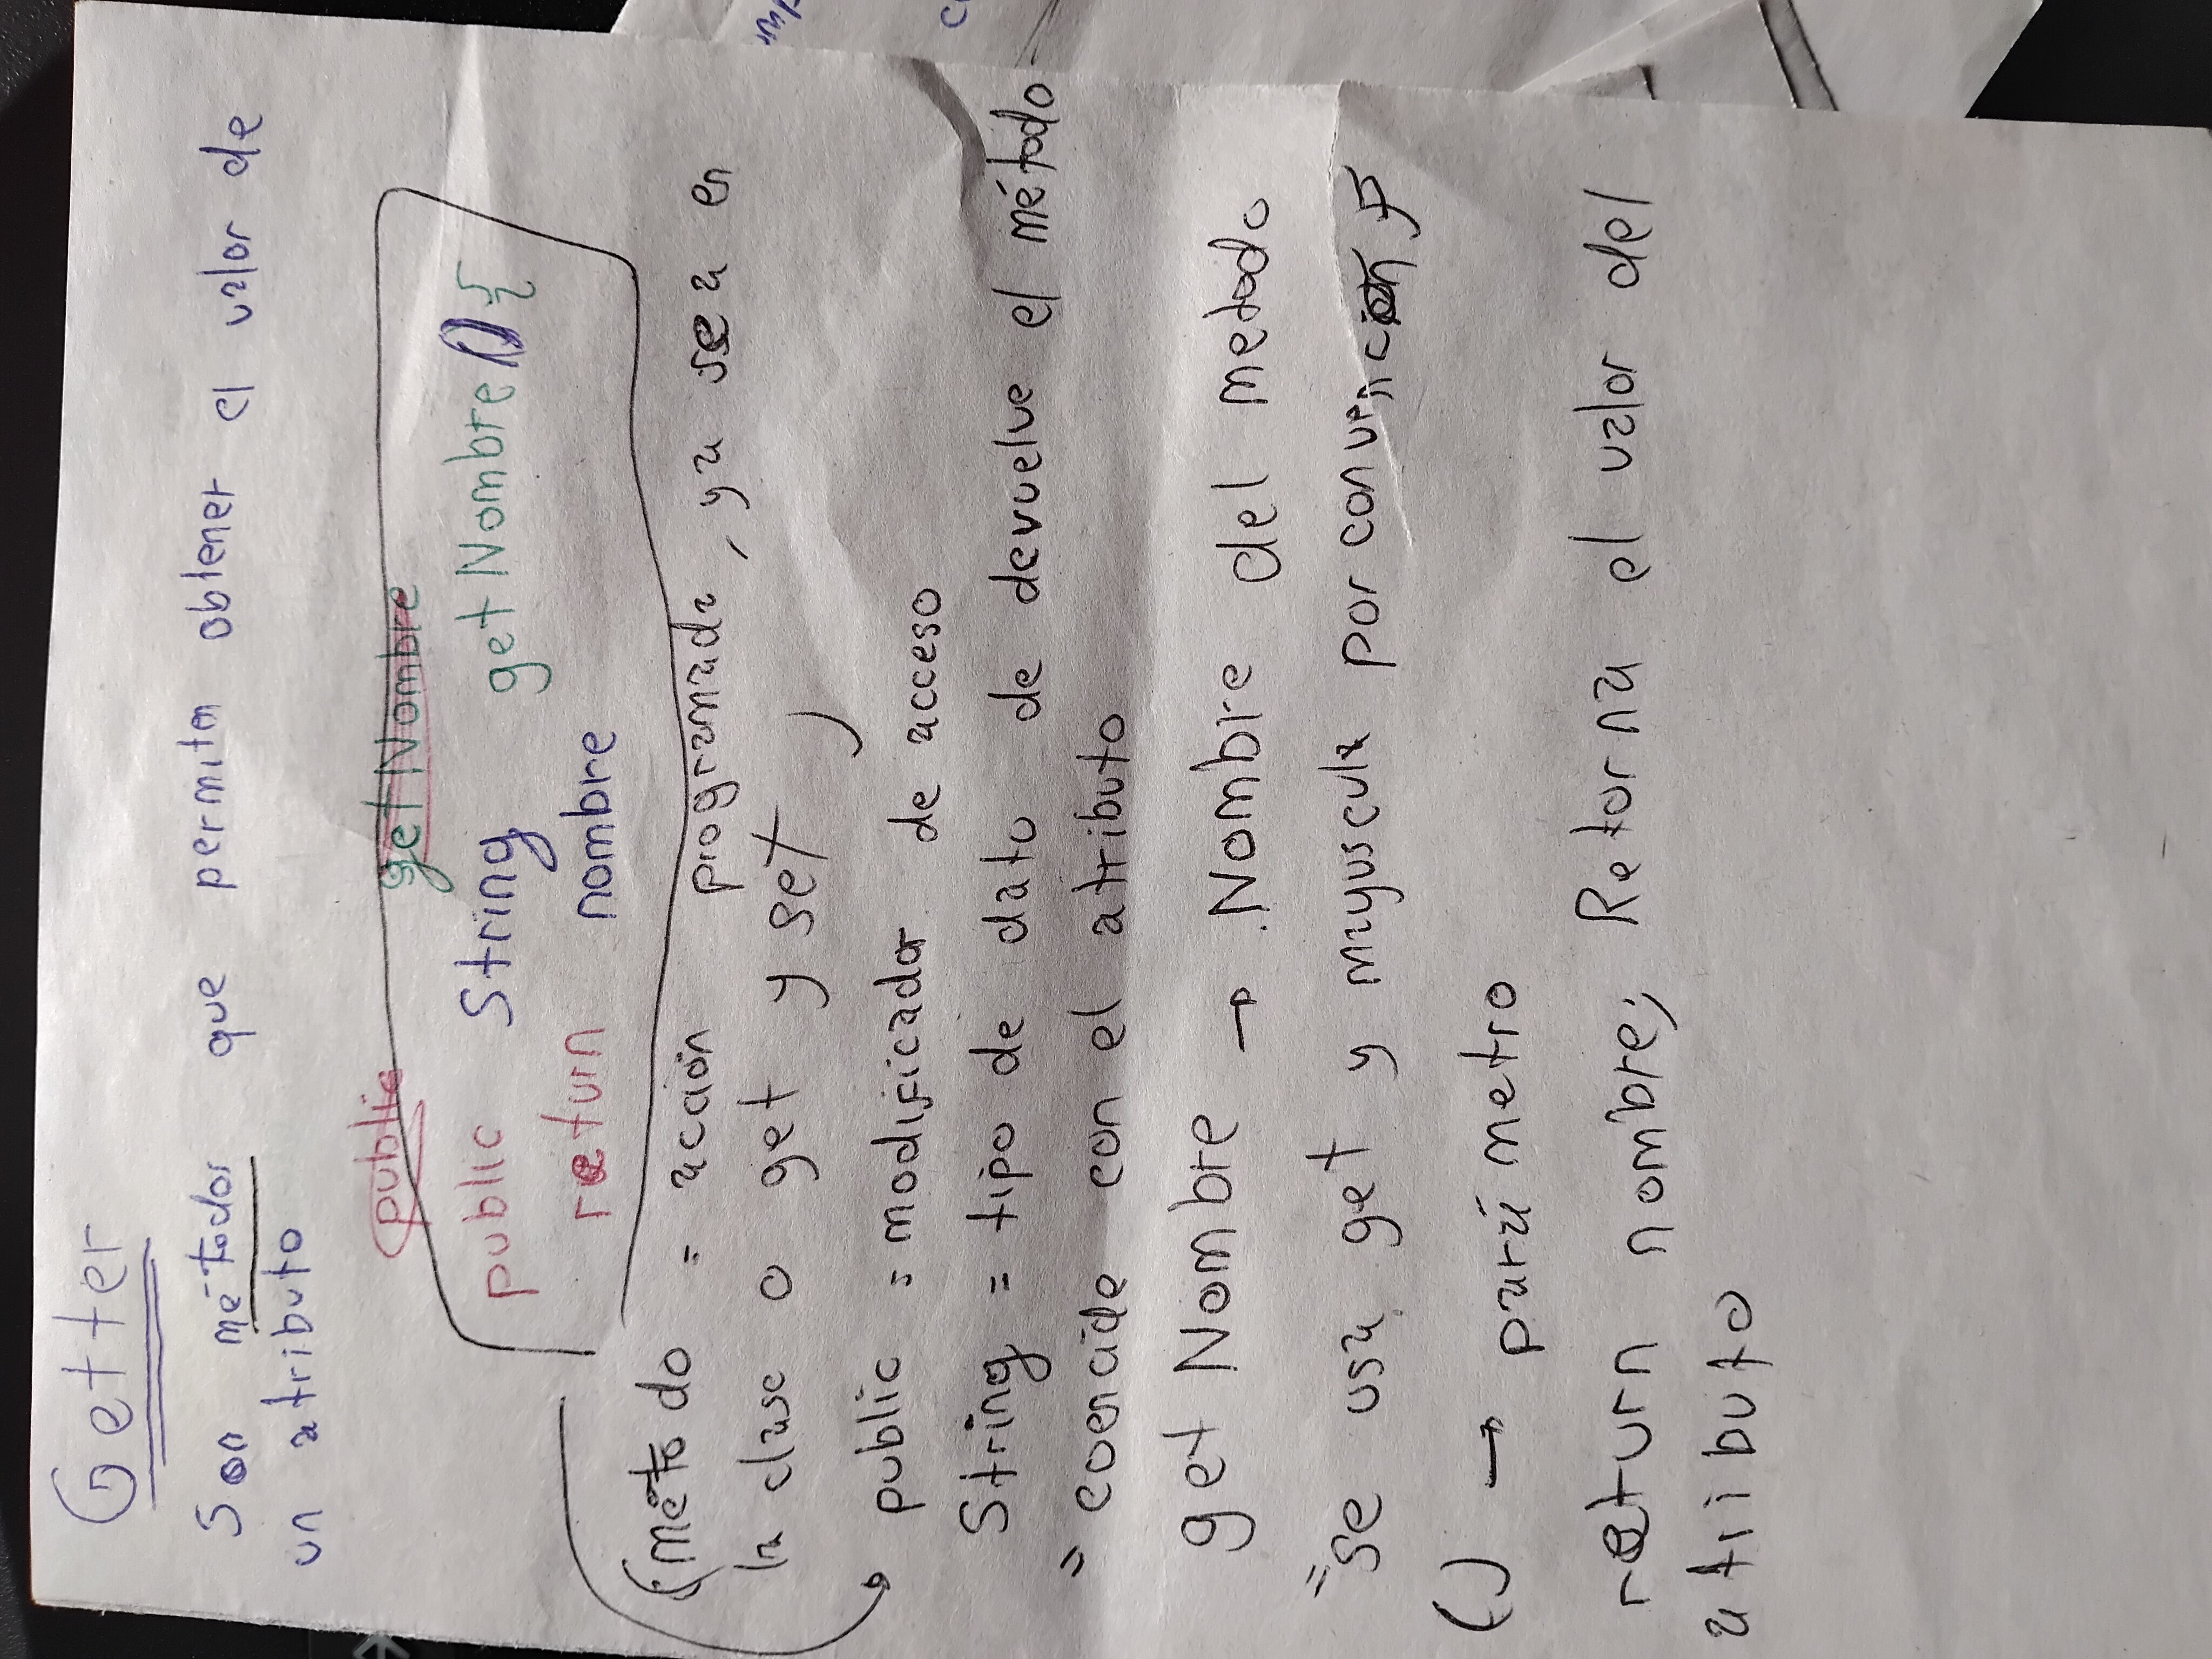 Getter
Son métodos que permiten obtener el valor de
un atributo
public getNombre
public String getNombre() {
return nombre
(método = acción programada, ya sea en
la clase o get y set )
public = modificador de acceso
String = tipo de dato de devuelve el método
" coencide con el atributo
get Nombre → Nombre del metodo
"se usa get y mayuscula por convención
() → parámetro
return nombre; Retorna el valor del
atributo